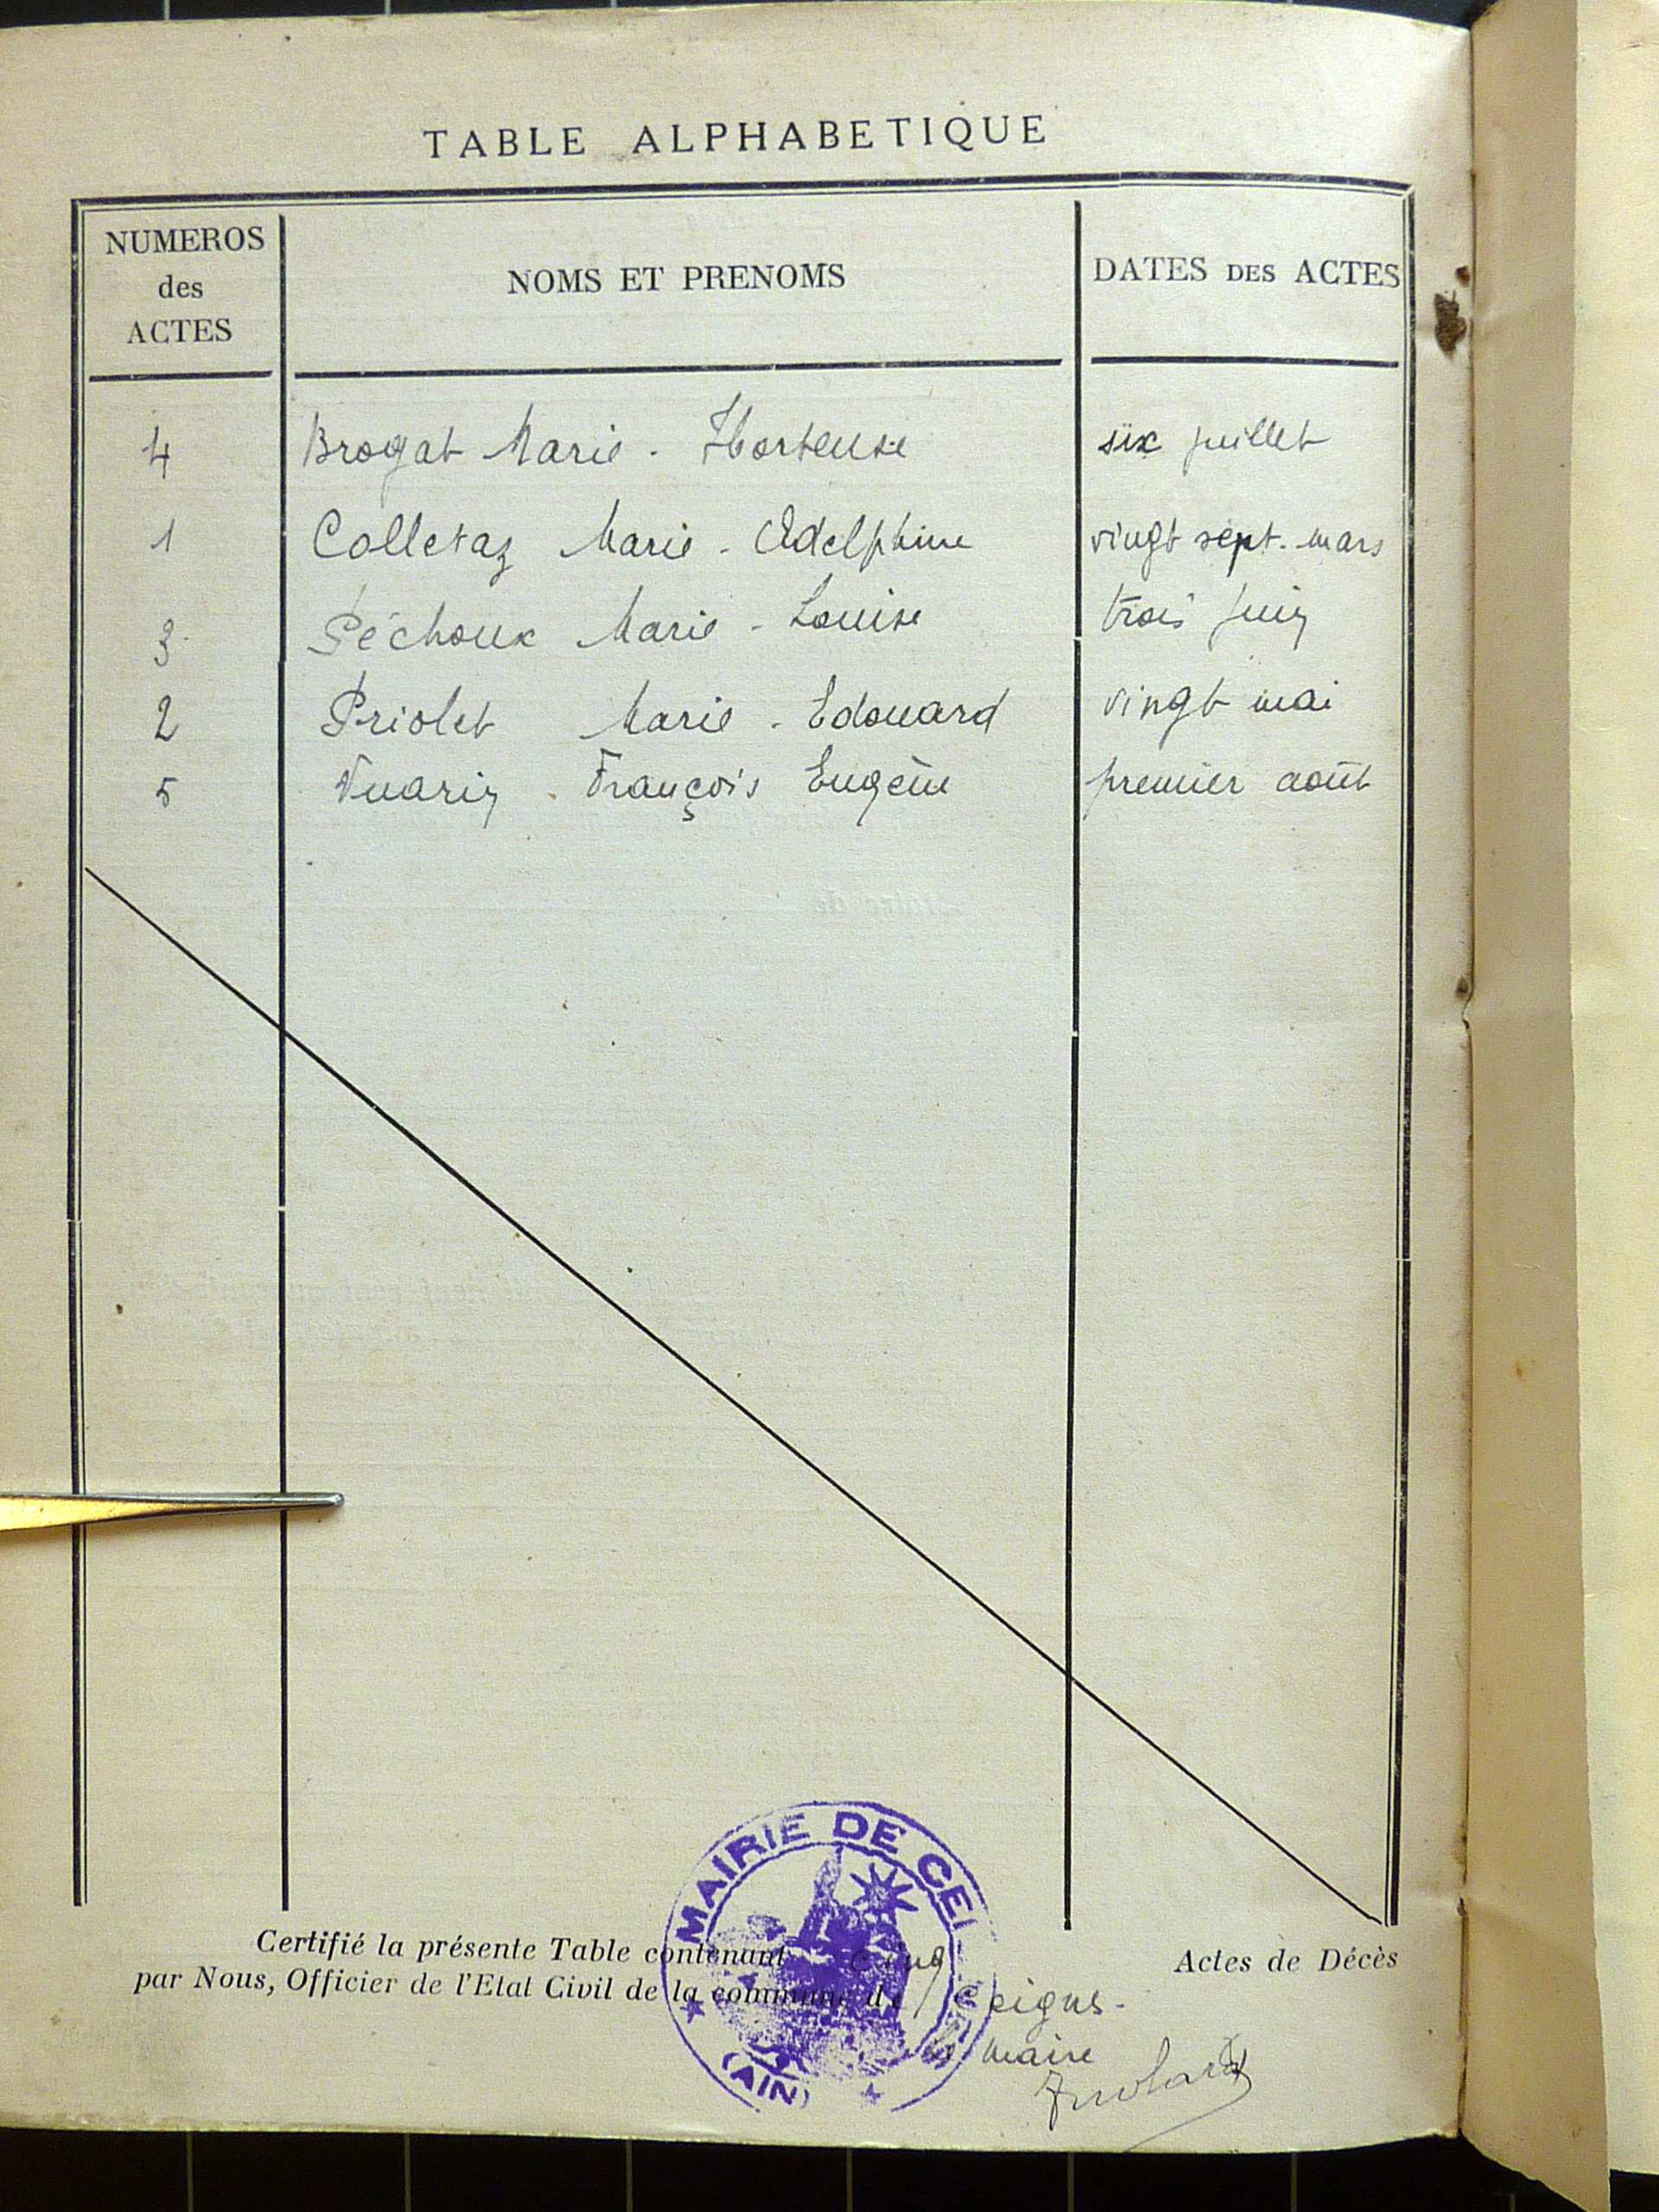 TABLE ALPHABETIQUE
NUMEROS
des
ACTES
NOMS ET PRENOMS
DATES DES ACTES
4 Brogat Marie - Hortense six juillet
1 Colletaz Marie - Adelphine vingt sept. mars
3 Péchoux Marie - Louise trois juin
2 Priolet Marie - Edouard vingt mai
5 Vuarin François Eugène premier août
Certifié la présente Table contenant cinq Actes de Décès
par Nous, Officier de l'Etat Civil de la commune de Ceignes -
le maire
MAIRIE DE CEI
(AIN)